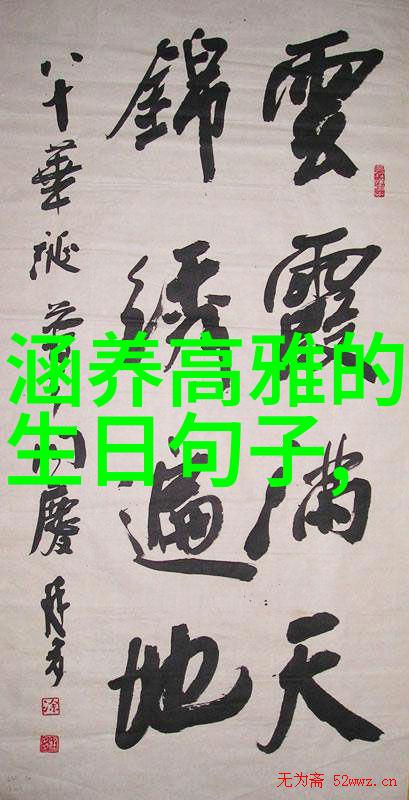 雲霞滿天
錦绣遍地
八十華誕
慶
涵养高雅的
生日句子,
无为斋 52wwz.cn